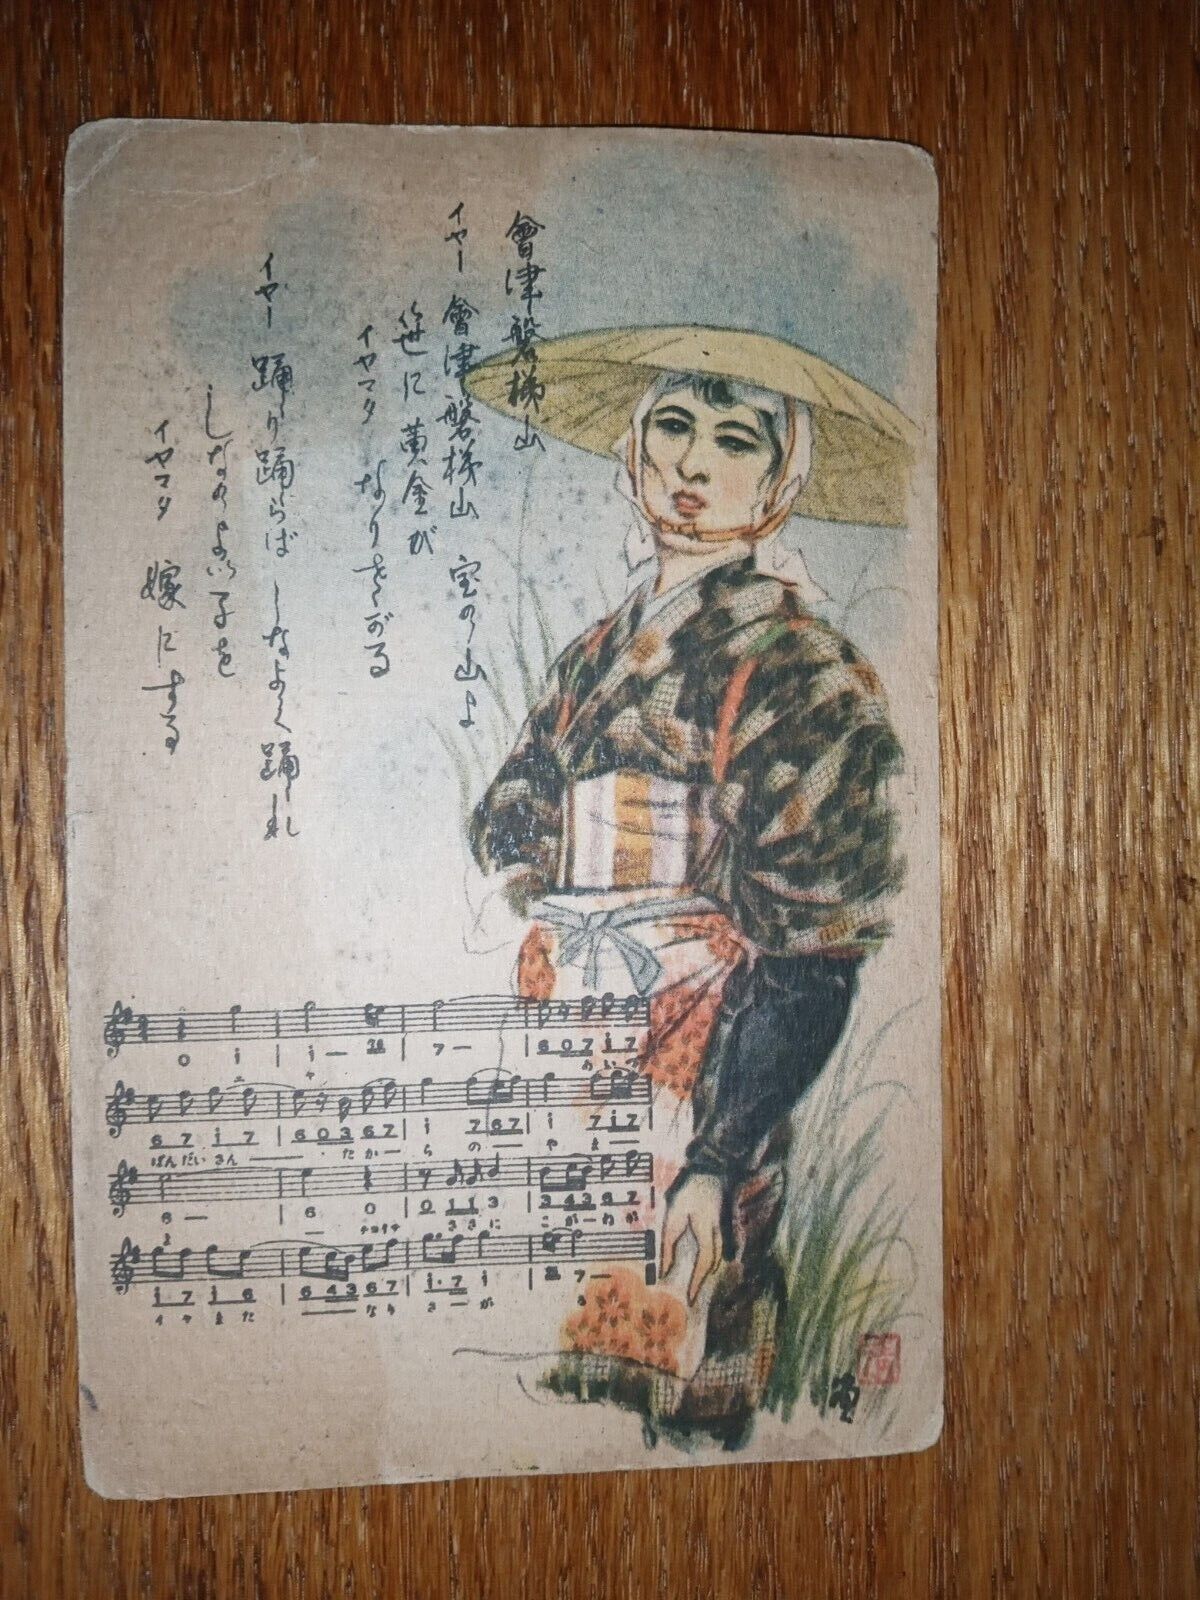 會津磐梯山
イヤー 會津磐梯山 宝の山よ
笹に 黄金が
イヤマタ なりさがる
イヤー 踊り踊らば しなよく踊れ
しなのよい子を
イヤマタ 嫁にする
0 i | i – | 7 – | 6 0 7 i 7
あいづ
6 7 i 7 | 6 0 3 6 7 | i 7 6 7 | i 7 i 7
ばんだいさん たか らの やま
6 – | 6 0 | 0 i i 3 | 3 4 3 6 7
チョイチョイ ささに こがねが
i 7 i 6 | 6 4 3 6 7 | i · 7 i | 7 –
イヤまた なり さーが る